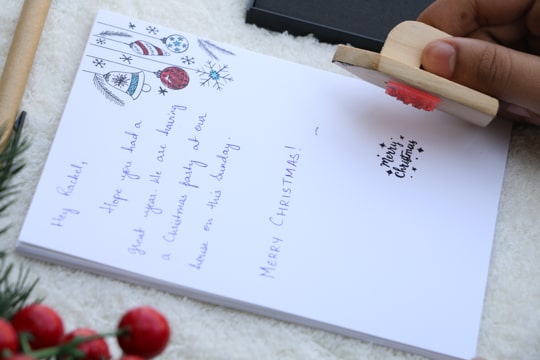 Hey Rachel,
Hope you had a
great year. We are having
a Christmas party at our
house on this Sunday.
MERRY CHRISTMAS!
Merry
Christmas